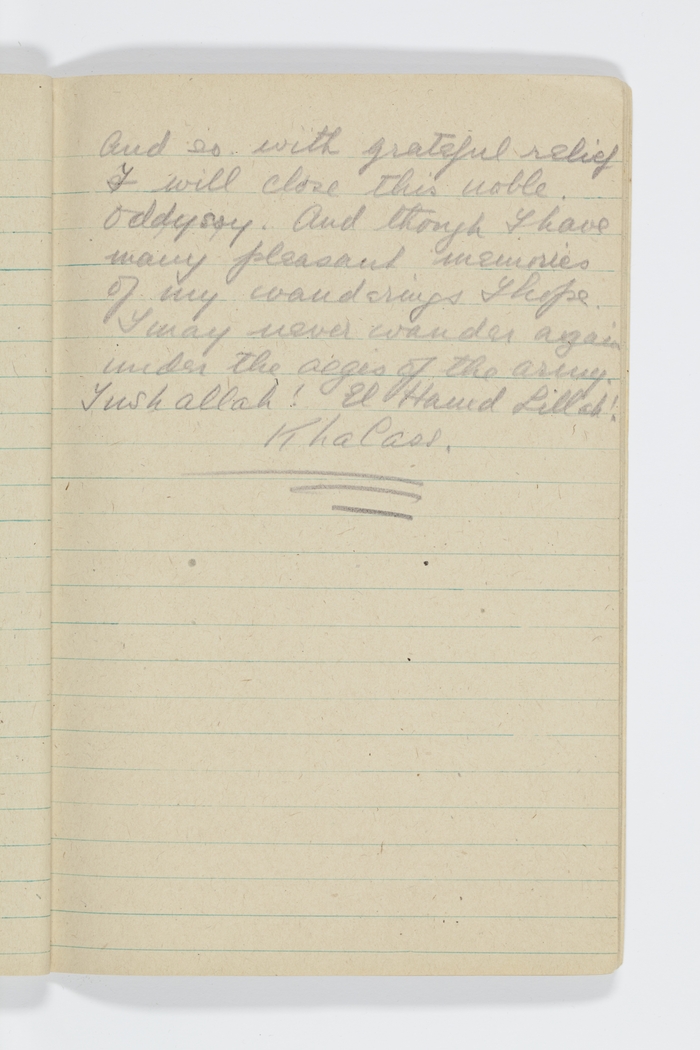 And so with grateful relief
I will close this noble.
Oddysoy. And though I have
many pleasant memories
of my wanderings I hope.
I may never wander again
under the aeges of the army.
Inshallah! El Hamd Lillah!
Khalass.